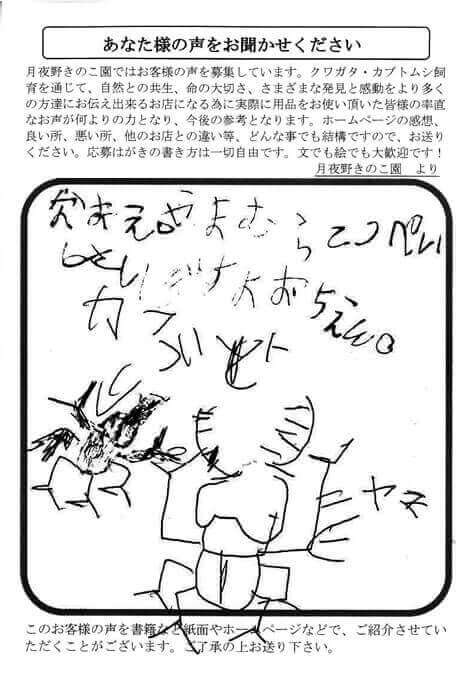 あなた様の声をお聞かせください
月夜野きのこ園ではお客様の声を募集しています。クワガタ・カブトムシ飼
育を通じて、自然との共生、命の大切さ、さまざまな発見と感動をより多く
の方達にお伝え出来るお店になる為に実際に用品をお使い頂いた皆様の率直
なお声が何よりの力となり、今後の参考となります。ホームページの感想、
良い所、悪い所、他のお店との違い等、どんな事でも結構ですので、お送り
ください。応募はがきの書き方は一切自由です。文でも絵でも大歓迎です！
月夜野きのこ園　より
やまむらこつぺい
さいですよおうえん。
カブ
ミヤマ
このお客様の声を書籍など紙面やホームページなどで、ご紹介させてい
ただくことがございます。ご了承の上お送り下さい。